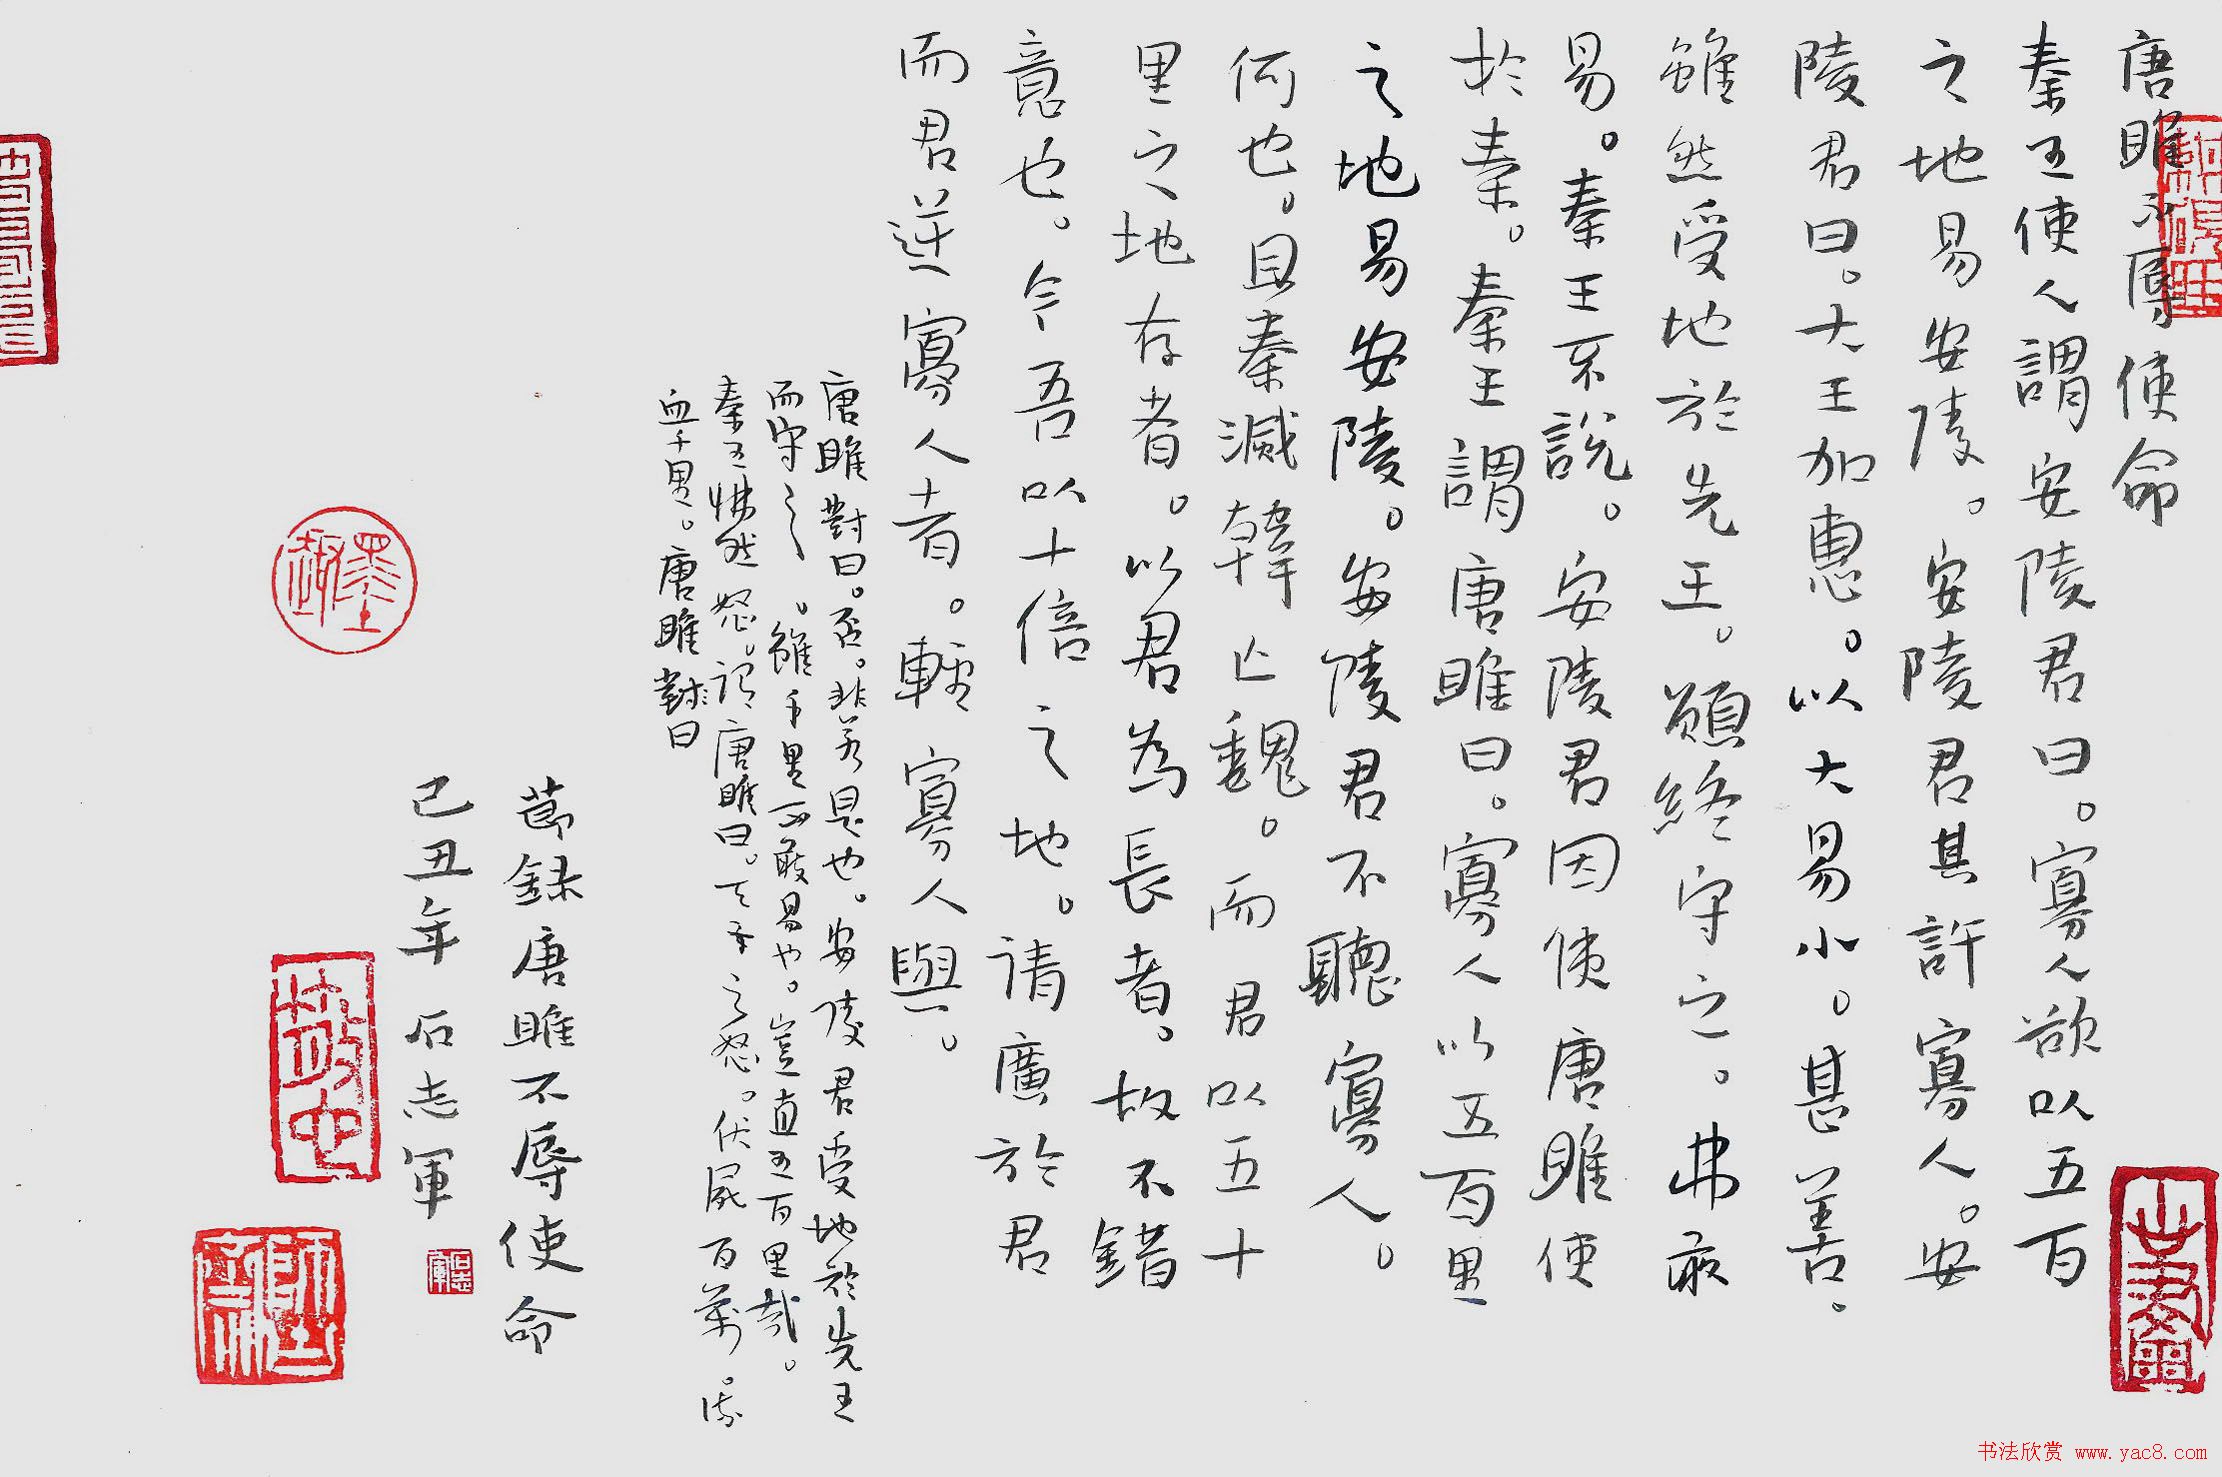 唐雎不辱使命
秦王使人謂安陵君曰。寡人欲以五百
之地易安陵。安陵君其許寡人。安
陵君曰。大王加惠。以大易小。甚善。
雖然受地於先王。願終守之。弗敢
易。秦王不說。安陵君因使唐雎使
於秦。秦王謂唐雎曰。寡人以五百里
之地易安陵。安陵君不聽寡人。
何也。且秦滅韓亡魏。而君以五十
里之地存者。以君為長者。故不錯
意也。今吾以十倍之地。請廣於君
而君逆寡人者。輕寡人與。
唐雎對曰。否。非若是也。安陵君受地於先王
而守之。雖千里不敢易也。豈直五百里哉。
秦王怫然怒。謂唐雎曰。天子之怒。伏屍百萬流
血千里。唐雎對曰
節録唐雎不辱使命
己丑年石志軍
墨趣
石志軍
书法欣赏 www.yac8.com